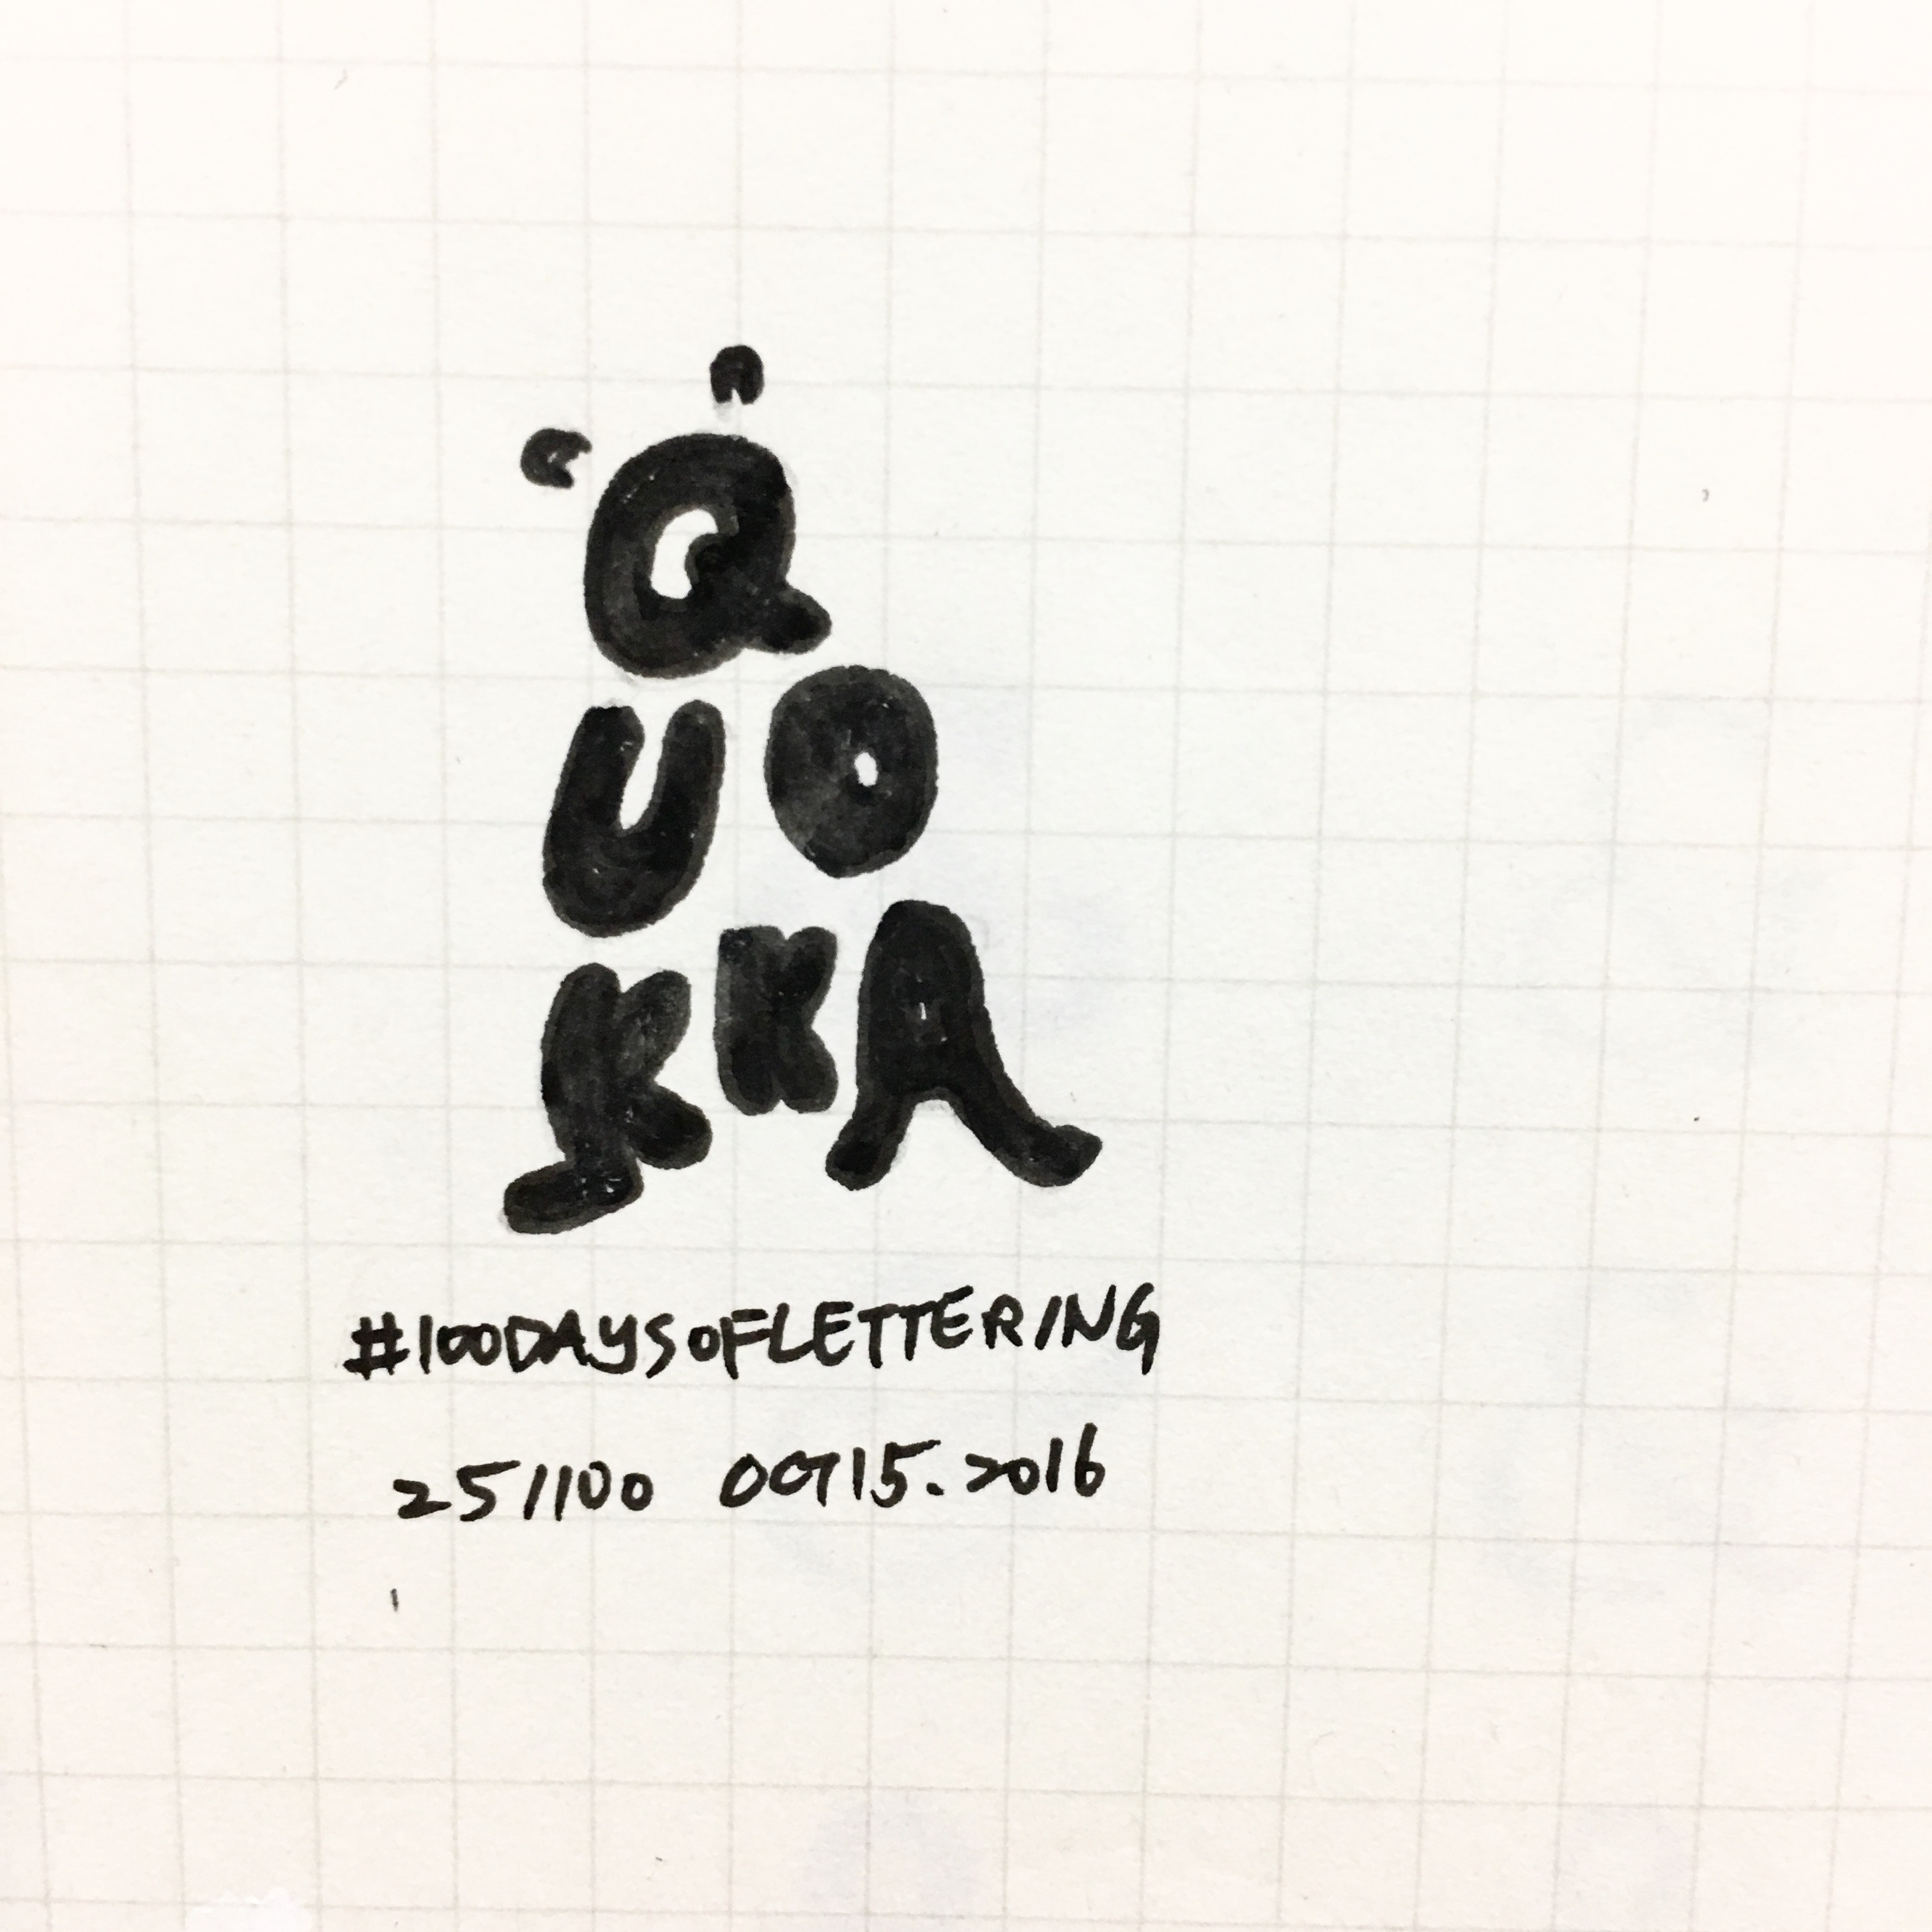 Q
UO
KKA
#100DAYSOFLETTERING
25/100 OCT 15. 2016